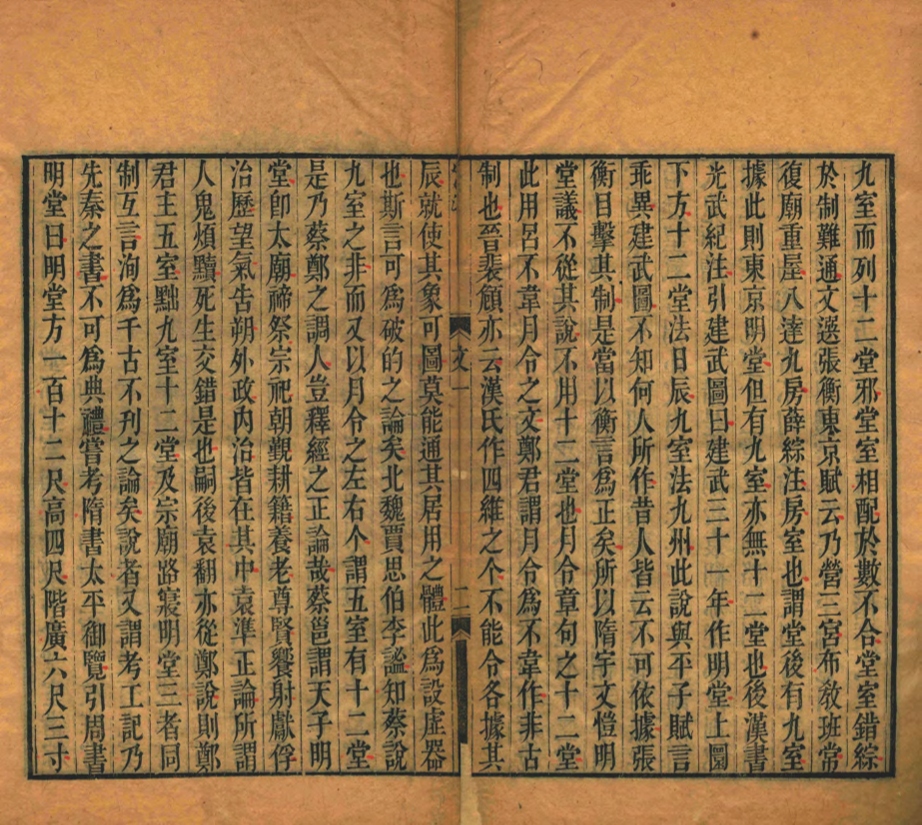 九室而列十二堂邪堂室相配於數不合堂室錯綜
於制難通文選張衡東京賦云乃營三宮布敎班常
復廟重屋八達九房薛綜注房室也謂堂後有九室
據此則東京明堂但有九室亦無十二堂也後漢書
光武紀注引建武圖曰建武三十一年作明堂上圓
下方十二堂法日辰九室法九州此說與平子賦言
乖異建武圖不知何人所作昔人皆云不可依據張
衡目擊其制是當以衡言爲正矣所以隋宇文愷明
堂議不從其說不用十二堂也月令章句之十二堂
此用呂不韋月令之文鄭君謂月令爲不韋作非古
制也晉裴頠亦云漢氏作四維之个不能令各據其
文一
二
辰就使其象可圖莫能通其居用之體此爲設虛器
也斯言可爲破的之論矣北魏賈思伯李謐知蔡說
九室之非而又以月令之左右个謂五室有十二堂
是乃蔡鄭之調人豈釋經之正論哉蔡邕謂天子明
堂卽太廟禘祭宗祀朝覲耕籍養老尊賢饗射獻俘
治歷望氣告朔外政內治皆在其中袁準正論所謂
人鬼煩黷死生交錯是也嗣後袁翻亦從鄭說則鄭
君主五室黜九室十二堂及宗廟路寢明堂三者同
制互言洵爲千古不刊之論矣說者又謂考工記乃
先秦之書不可爲典禮嘗考隋書太平御覽引周書
明堂曰明堂方一百十二尺高四尺階廣六尺三寸